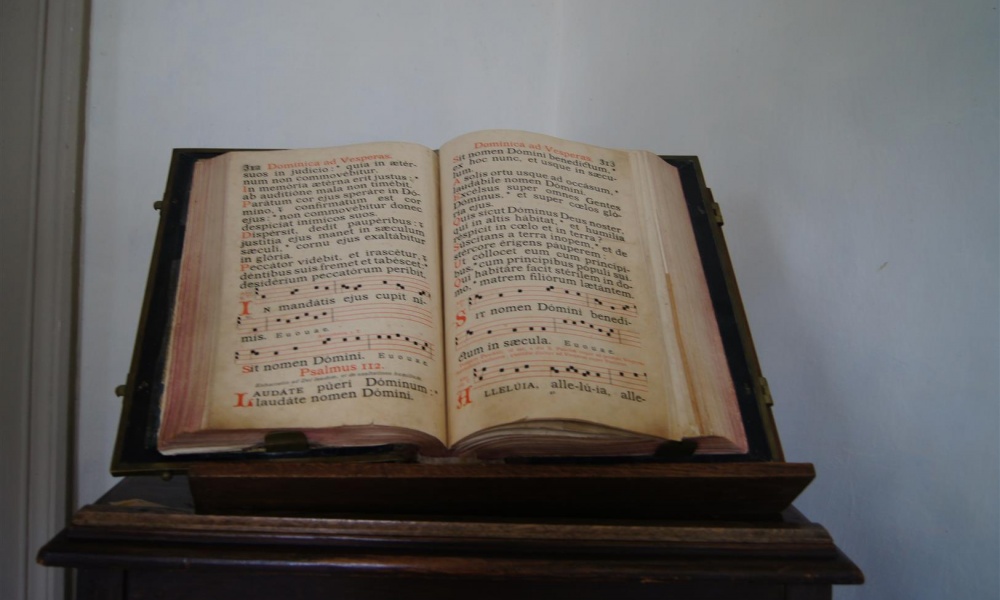 312 Dominica ad Vesperas.
suos in judício : * quia in ætér-
num non commovébitur.
In memória ætérna erit justus : *
ab auditióne mala non timébit.
Parátum cor ejus speráre in Dó-
mino, † confirmátum est cor
ejus : * non commovébitur donec
despíciat inimícos suos.
Dispérsit, dedit paupéribus : †
justítia ejus manet in sæculum
sæculi, * cornu ejus exaltábitur
in glória.
Peccátor vidébit, et irascétur, †
déntibus suis fremet et tabéscet : *
desidérium peccatórum períbit.
IN mandátis ejus cupit ni-
mis. E u o u a e.
Sit nomen Dómini. E u o u a e.
Psalmus 112.
LAUDÁTE púeri Dóminum : *
laudáte nomen Dómini.
Dominica ad Vesperas. 313
Sit nomen Dómini benedíctum, *
ex hoc nunc, et usque in sæcu-
lum.
A solis ortu usque ad occásum, *
laudábile nomen Dómini.
Excélsus super omnes Gentes
Dóminus, * et super cœlos gló-
ria ejus.
Quis sicut Dóminus Deus noster,
qui in altis hábitat, * et humília
réspicit in cœlo et in terra ?
Súscitans a terra ínopem, * et de
stércore érigens páuperem :
Ut cóllocet eum cum princípi-
bus, * cum princípibus pópuli sui.
Qui habitáre facit stérilem in do-
mo, * matrem filiórum lætántem.
SIT nomen Dómini benedí-
ctum in sæcula. E u o u a e.
ALLELÚIA, alle-lú-ia, alle-